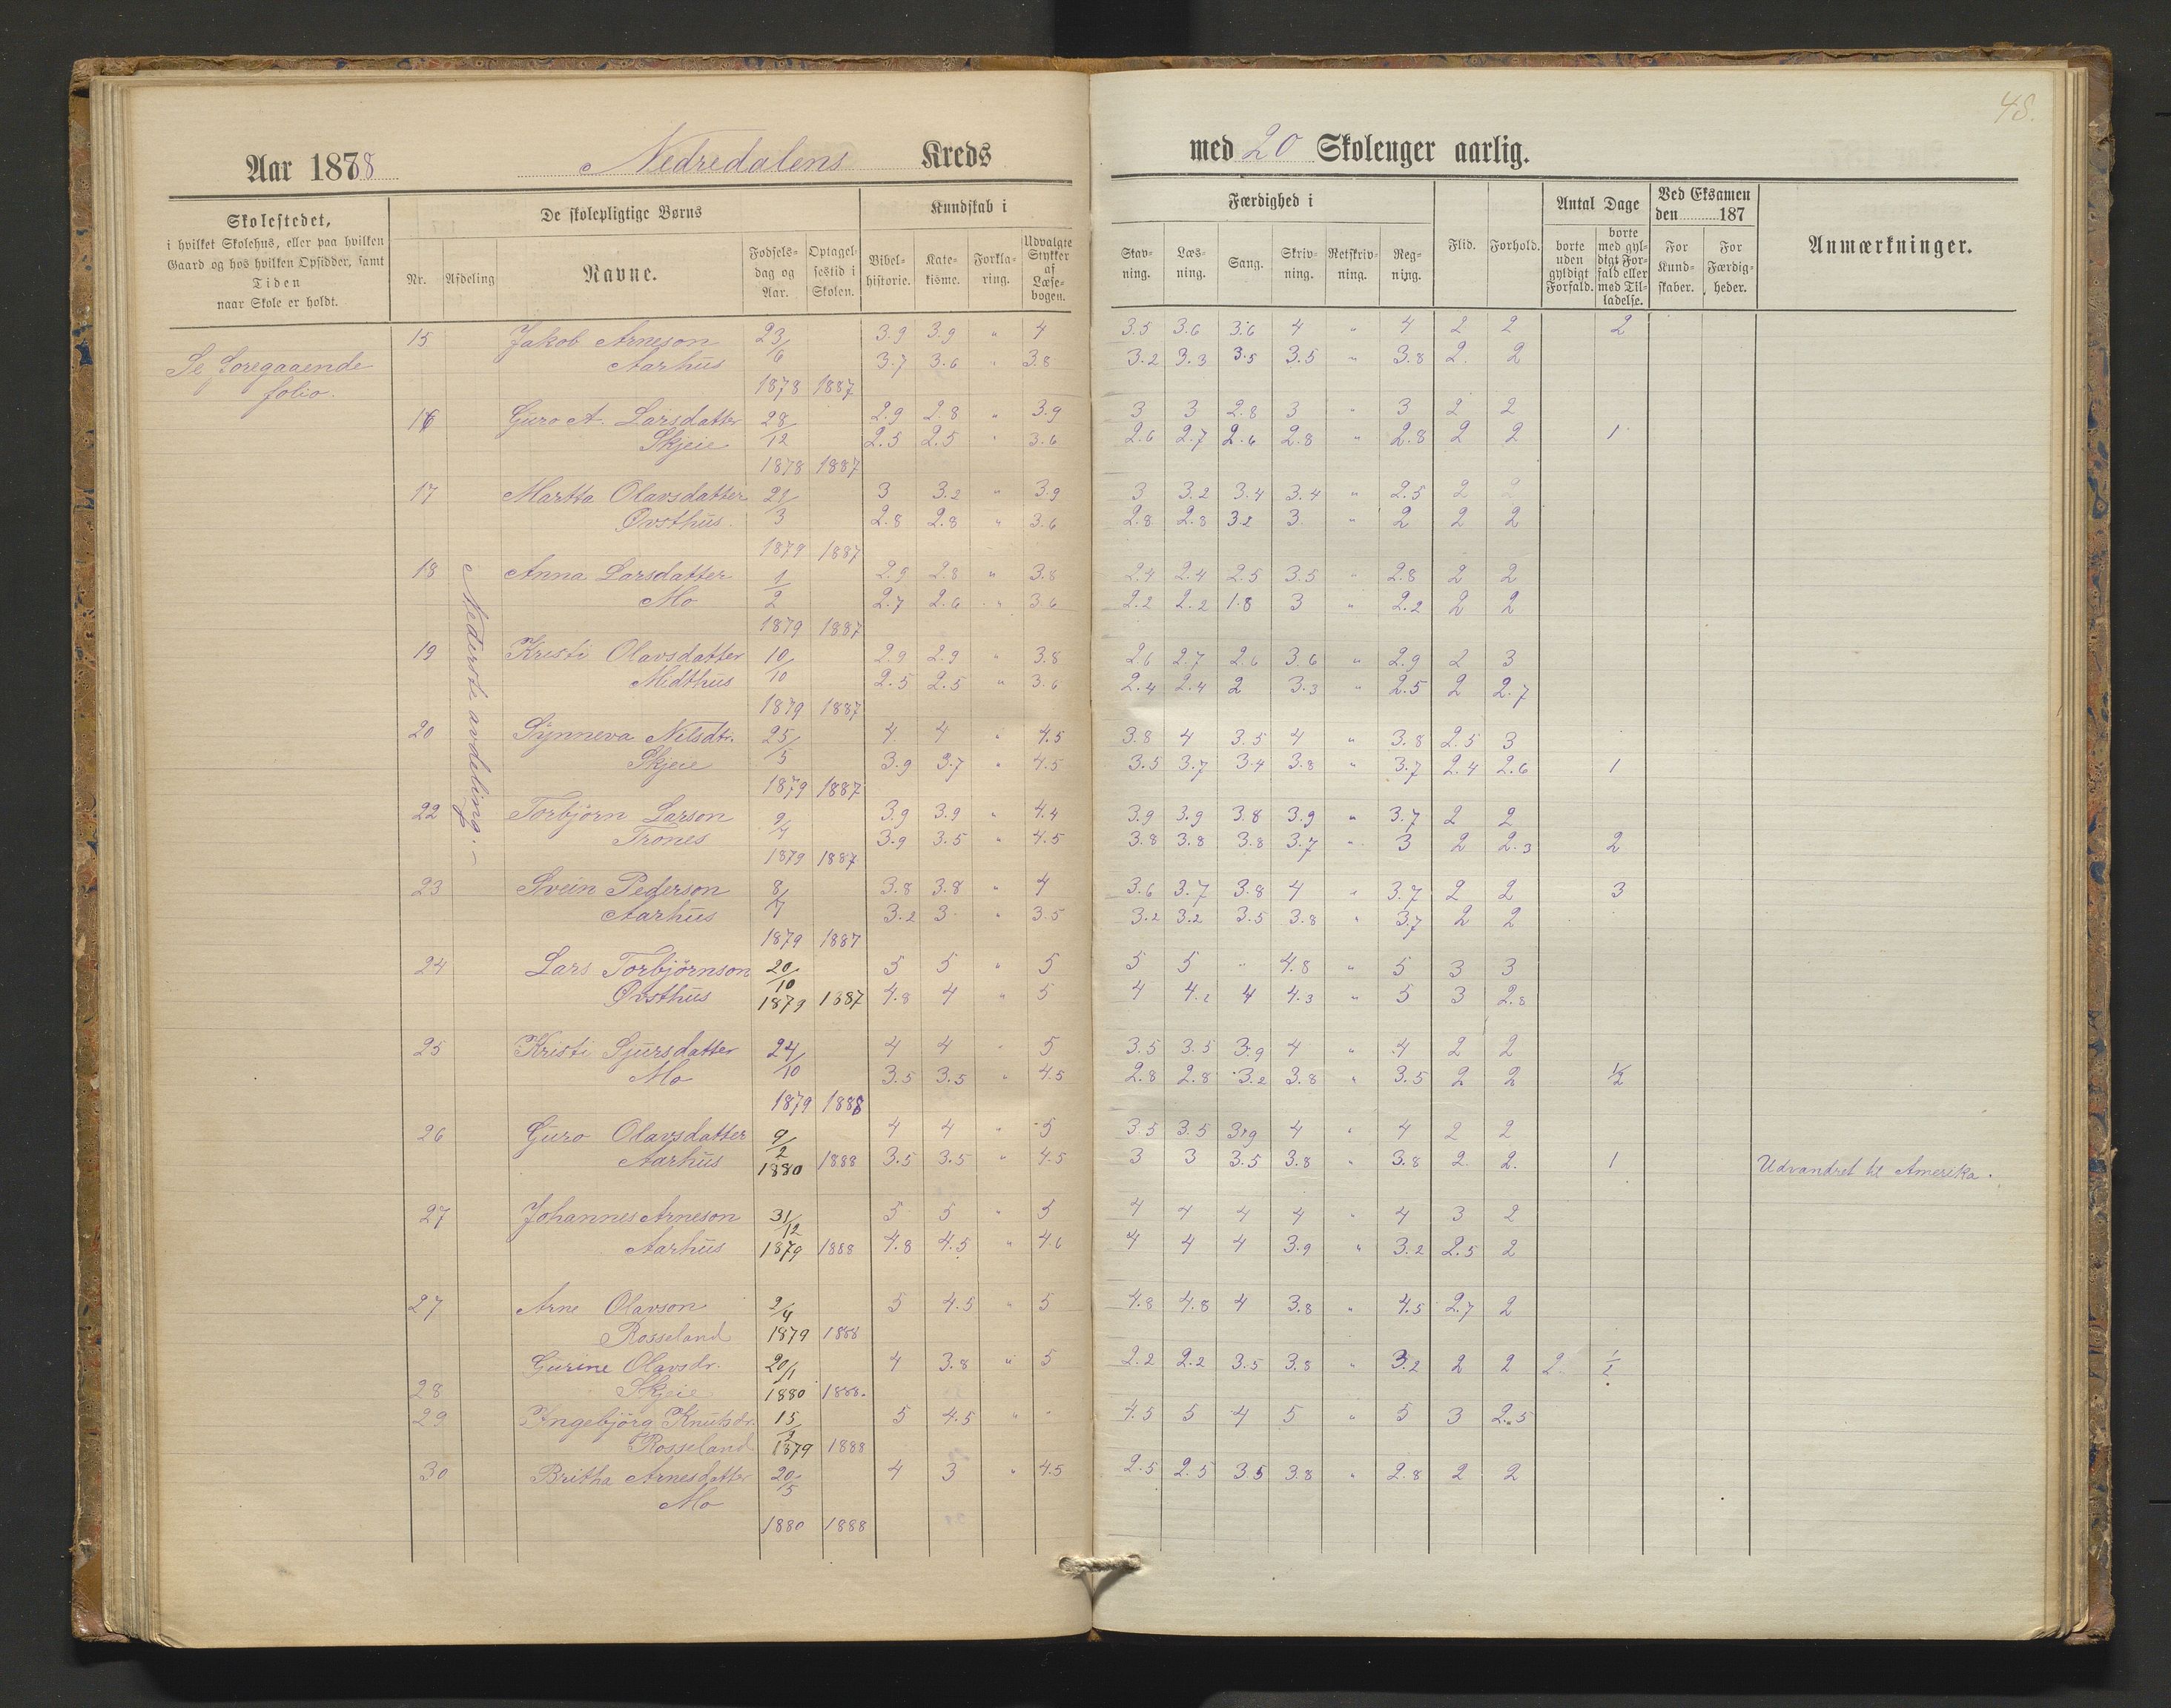 48.
Aar 1878 8 Nedredalens Kreds med 20 Skoleuger aarlig.
Skolestedet, i hvilket Skolehus, eller paa hvilken Gaard og hos hvilken Opsidder, samt Tiden naar Skole er holdt.
De skolepligtige Børns
Nr. Afdeling Navne. Fødselsdag og Aar. Optagelsestid i Skolen.
Kundskab i
Bibelhistorie. Katekisme. Forklaring. Udvalgte Stykker af Læsebogen.
Færdighed i
Stavning. Læsning. Sang. Skrivning. Retskrivning. Regning.
Flid. Forhold.
Antal Dage
borte uden gyldigt Forfald. borte med gyldigt Forfald eller med Tilladelse.
Ved Eksamen den 187
For Kundskaber. For Færdigheder.
Anmærkninger.
Se foregaaende
folio.
Nederste avdeling.-
15 Jakob Arneson 23/6 3.9 3.9 " 4 3.5 3.6 3.6 4 " 4 2 2 2
Aarhus 3.7 3.6 " 3.8 3.2 3.3 3.5 3.5 " 3.8 2. 2
1878 1887
16 Guro A. Larsdatter 28/12 2.9 2.8 " 3.9 3 3 2.8 3 " 3 2 2
Skjeie 2.5 2.5 " 3.6 2.6 2.7 2.6 2.8 " 2.8 2 2 1
1878 1887
17 Martha Olavsdatter 21/3 3 3.2 " 3.9 3 3.2 3.4 3.4 " 2.5 2 2
Øvsthus. 2.8 2.8 " 3.6 2.8 2.8 3.2 3 " 2 2 2
1879 1887
18 Anna Larsdatter 1/2 2.9 2.8 " 3.8 2.4 2.4 2.5 3.5 " 2.8 2 2
Mo 2.7 2.6 " 3.6 2.2 2.2 1.8 3 " 2.2 2 2
1879 1887
19 Kristi Olavsdatter 10/10 2.9 2.9 " 3.8 2.6 2.7 2.6 3.6 " 2.9 2 3
Midthus 2.5 2.5 " 3.6 2.4 2.4 2 3.3 " 2.5 2 2.7
1879 1887
20 Synneva Nilsdtr. 25/5 4 4 " 4.5 3.8 4 3.5 4 " 3.8 2.5 3
Skjeie 3.9 3.7 " 4.5 3.5 3.7 3.4 3.8 " 3.7 2.4 2.6 1
1879 1887
22 Torbjørn Larson 9/4 3.9 3.9 " 4.4 3.9 3.9 3.8 3.9 " 3.7 2 2
Trones 3.9 3.5 " 4.5 3.8 3.8 3.8 3.7 " 3 2 2.3 2
1879 1887
23 Svein Pederson 8/7 3.8 3.8 " 4 3.6 3.7 3.8 4 " 3.7 2 2 3
Aarhus 3.2 3 " 3.5 3.2 3.2 3.5 3.8 " 3.7 2 2
1879 1887
24 Lars Torbjørnson 20/10 5 5 " 5 5 5 " 4.8 " 5 3 3
Øvsthus 1879 1887 4.8 4 " 5 4 4.2 4 4.3 " 5 3 2.8
25 Kristi Sjursdatter 24/10 4 4 " 5 3.5 3.5 3.9 4 " 4 2 2
Mo 3.5 3.5 " 4.5 2.8 2.8 3.2 3.8 " 3.5 2 2 ½
1879 1888
26 Guro Olavsdatter 9/2 4 4 " 5 3.5 3.5 3.9 4 " 4 2 2
Aarhus 1880 1888 3.5 3.5 " 4.5 3 3 3.5 3.8 " 3.8 2. 2. 1 Udvandret til Amerika.
27 Johannes Arneson 31/12 5 5 " 5 4 4 4 4 " 4 3 2
Aarhus 1879 1888 4.8 4.5 " 4.6 4 4 4 3.9 " 3.2 2.5 2
27 Arne Olavson 2/4 5 4.5 " 5 4.8 4.8 4 3.8 " 4.5 2.7 2
Rosseland 1879 1888
Gurine Olavsdr. 20/1 4 3.8 " 5 2.2 2.2 3.5 3.8 " 3.2 2 2 2. ½
28 Skjeie 1880 1888.
29 Ingebjørg Knutsdr. 15/9 5 4.5 " " 4.5 5 4 5 " 5 3 2.5
Rosseland 1879 1888
30 Britha Arnesdatter 20/5 4 3 " 4.5 2.5 2.5 3.5 3.8 " 2.8 2 2
Mo
1880 1888